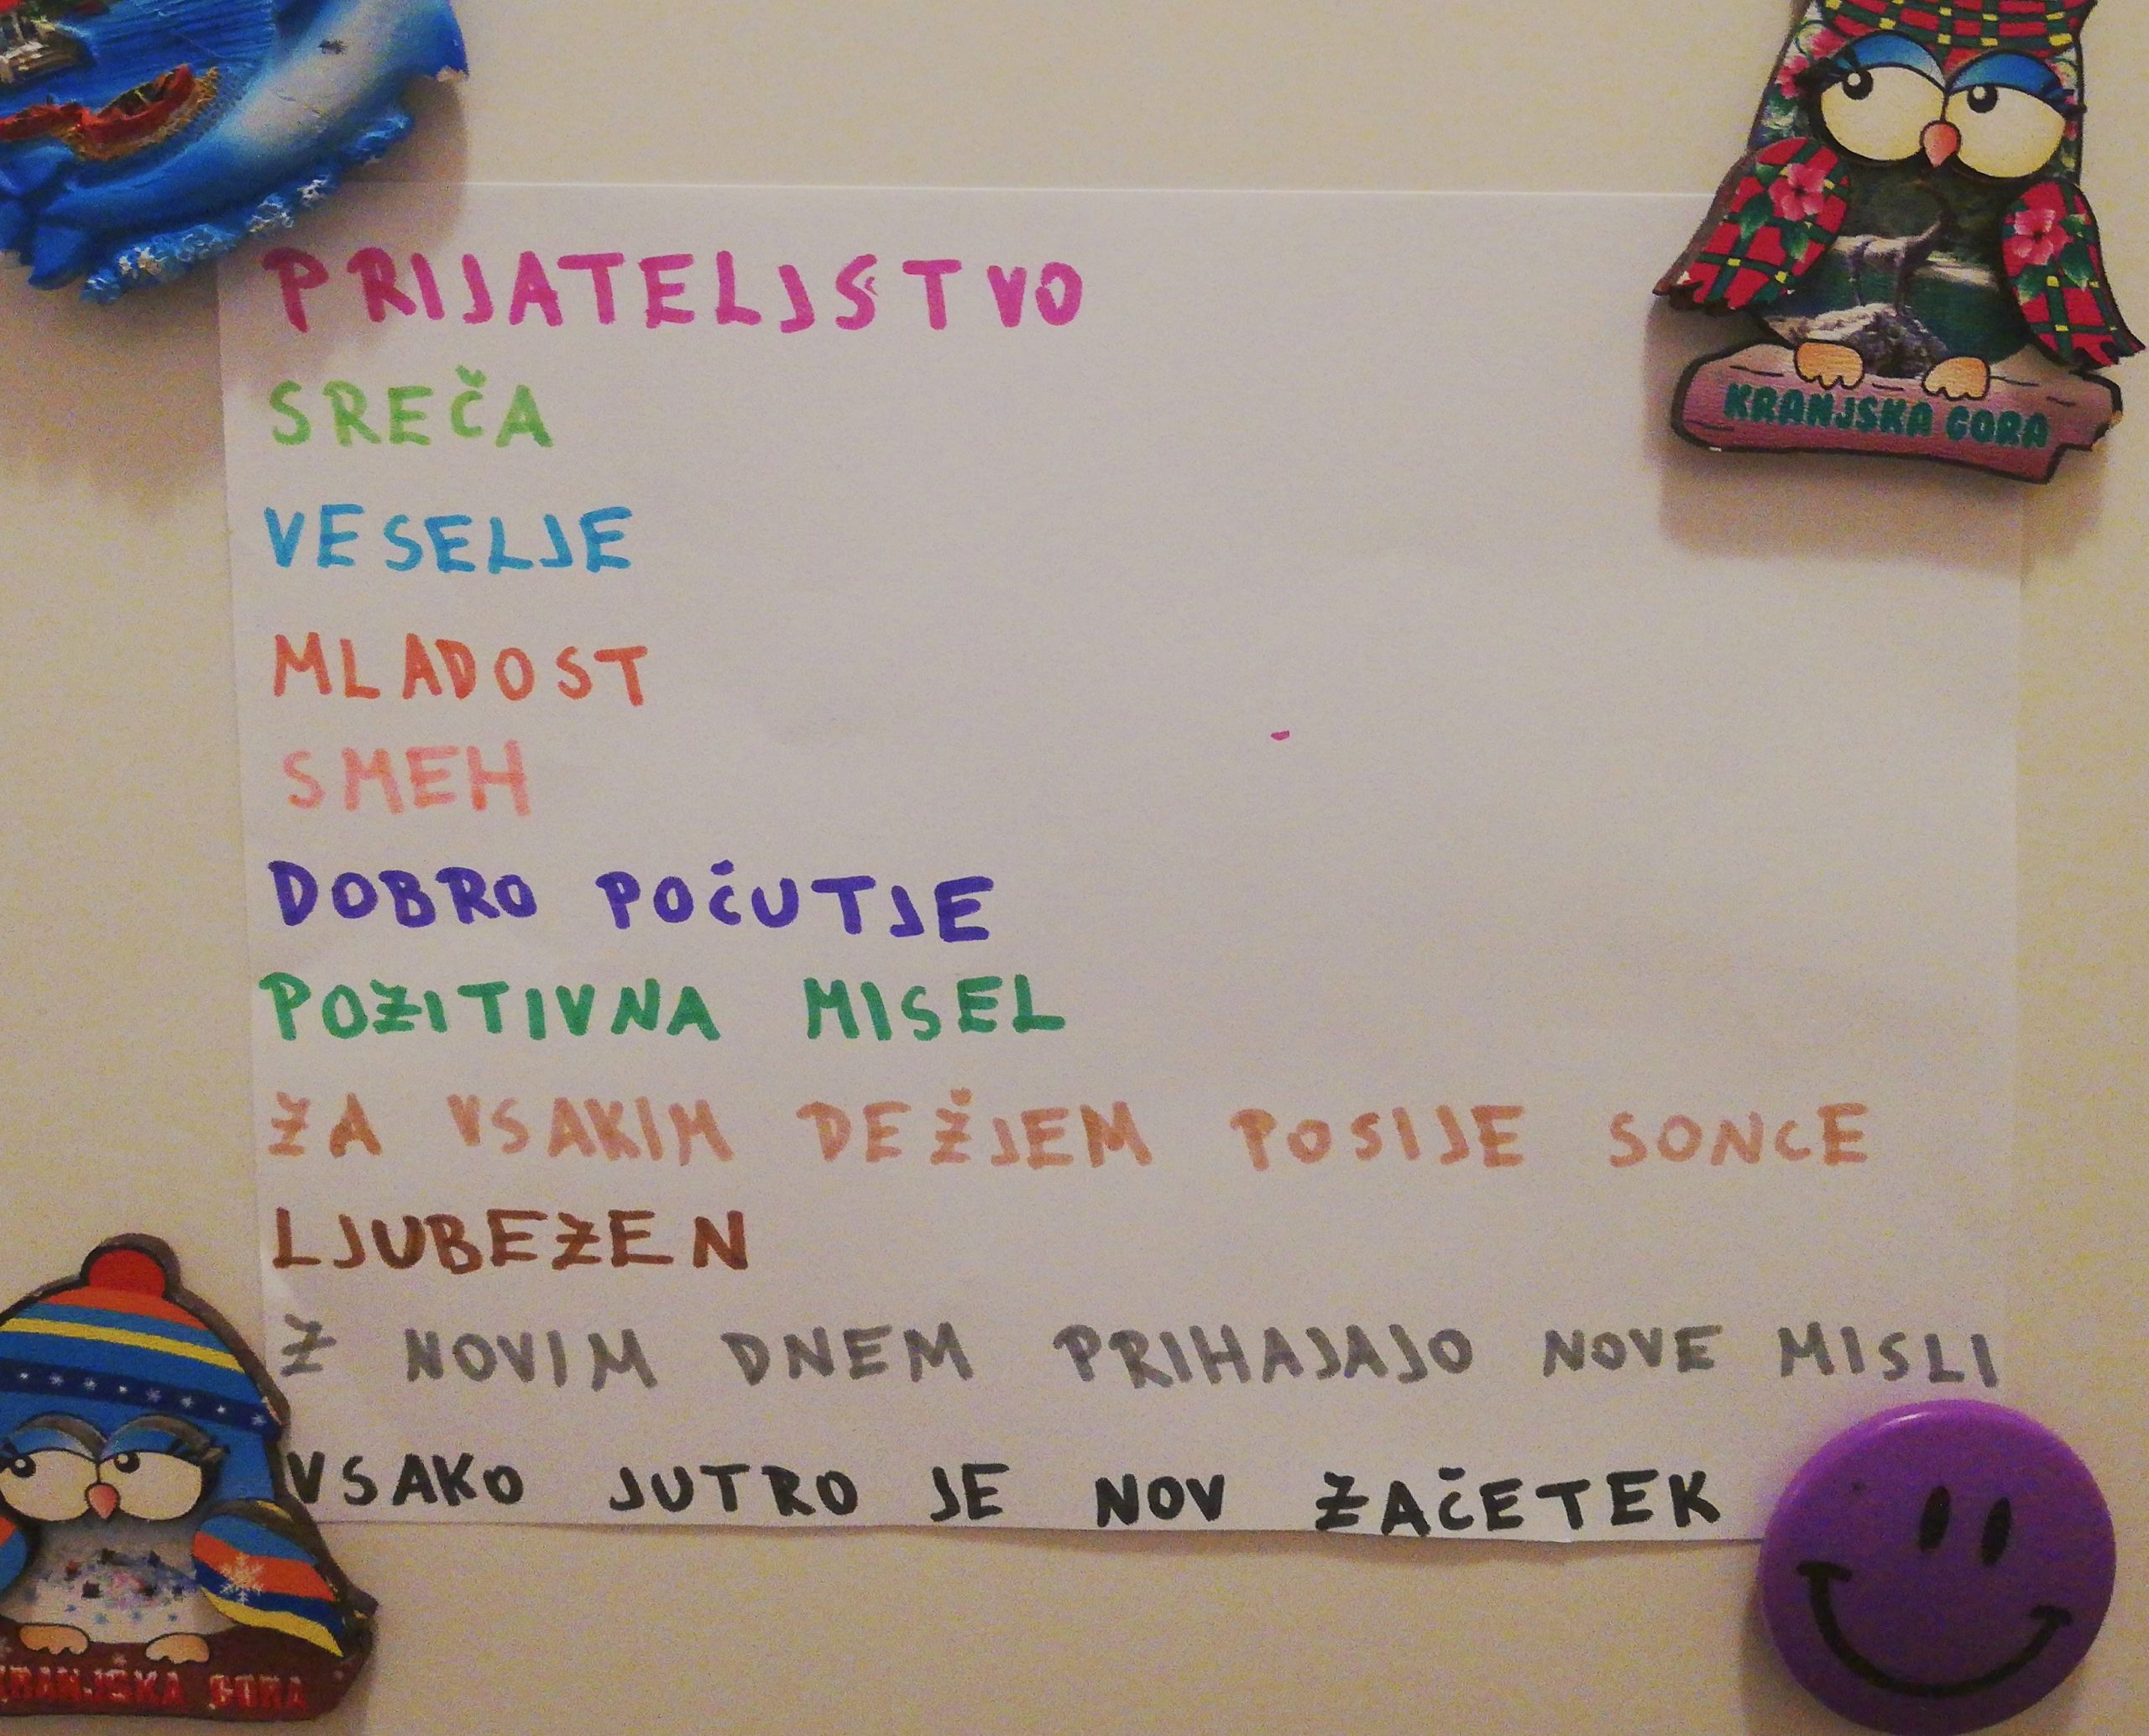 PRIJATELJSTVO
SREČA
VESELJE
MLADOST
SMEH
DOBRO POČUTJE
POZITIVNA MISEL
ZA VSAKIM DEŽJEM POSIJE SONCE
LJUBEZEN
Z NOVIM DNEM PRIHAJAJO NOVE MISLI
VSAKO JUTRO JE NOV ZAČETEK
KRANJSKA GORA
KRANJSKA GORA